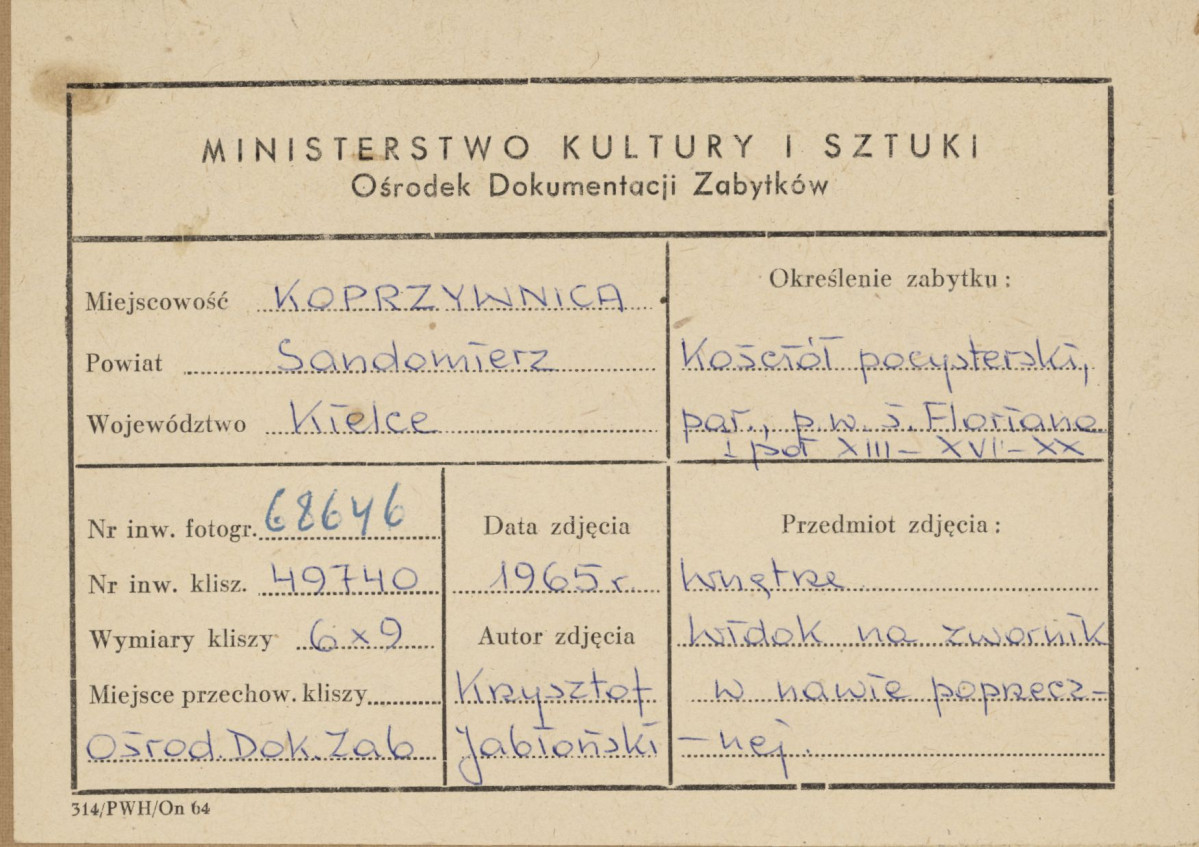 MINISTERSTWO KULTURY I SZTUKI
Ośrodek Dokumentacji Zabytków
Miejscowość KOPRZYWNICA
Powiat Sandomierz
Województwo Kielce
Określenie zabytku:
Kościół pocysterski,
par., p.w. ś. Floriana
I poł XIII – XVI – XX
Nr inw. fotogr. 68646
Nr inw. klisz. 49740
Wymiary kliszy 6x9
Miejsce przechow. kliszy
Ośrod. Dok. Zab
Data zdjęcia
1965 r.
Autor zdjęcia
Krzysztof
Jabłoński
Przedmiot zdjęcia:
Wnętrze
Widok na zwornik
w nawie poprzecz-
-nej.
314/PWH/On 64